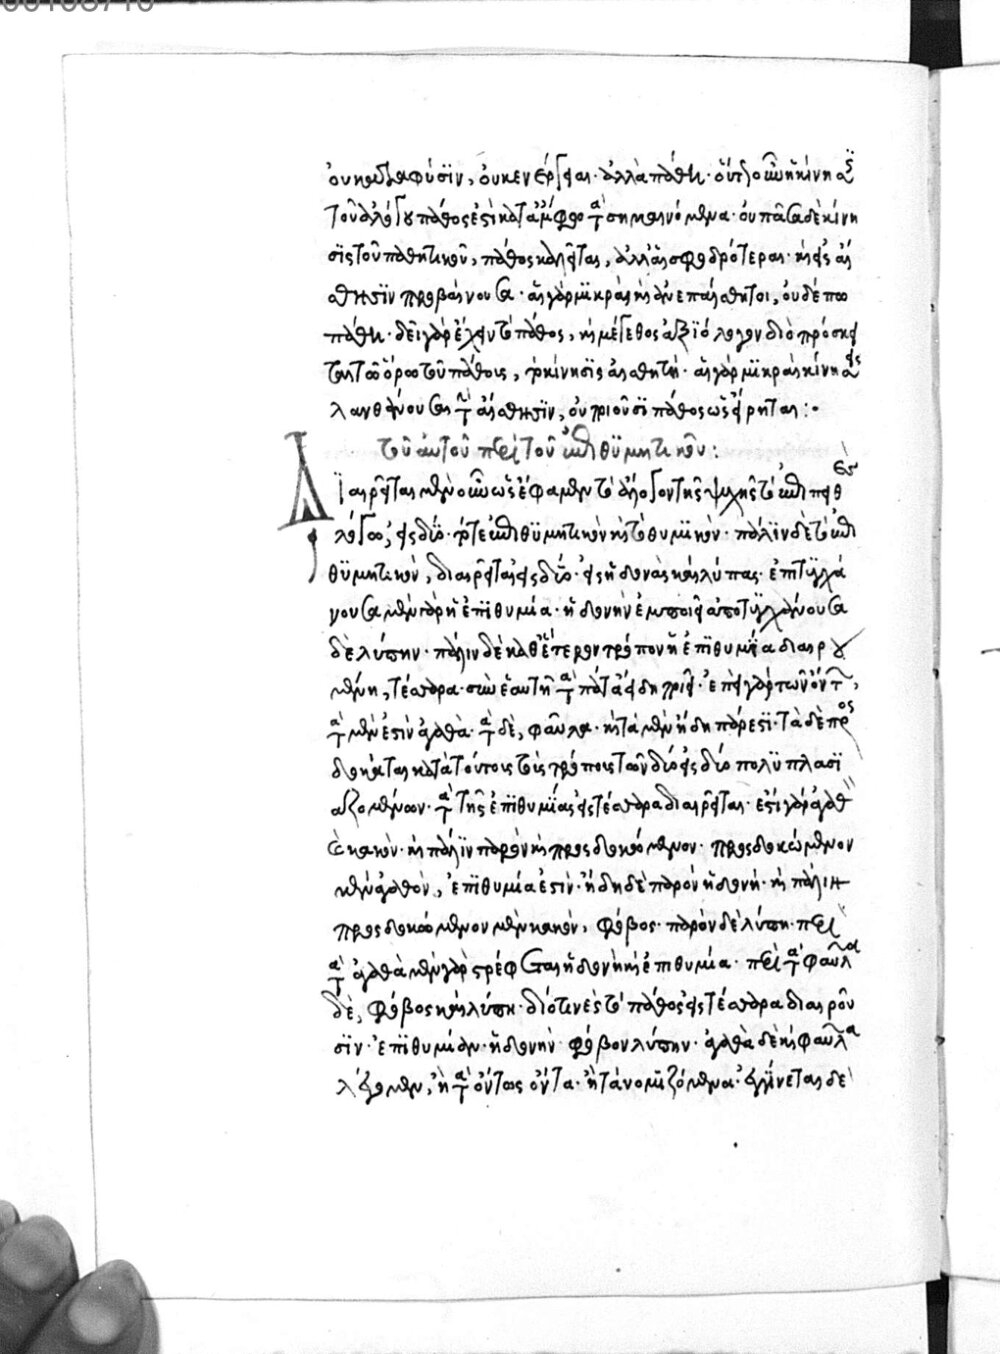 οὐ κατὰ φύσιν, οὐκ ἐνέργειαι· ἀλλὰ πάθη· οὕτω οὖν ἡ κίνησις
τοῦ ἀλόγου πάθος ἐστὶ κατ' ἄμφω τὰ σημαινόμενα· οὐ πᾶσα δὲ κίνη
σις τοῦ παθητικοῦ, πάθος καλεῖται, ἀλλ' αἱ σφοδρότεραι· καὶ εἰς αἴ
σθησιν προβαίνουσαι· αἱ γὰρ μικραὶ καὶ ἀνεπαίσθητοι, οὐδέπω
πάθη· δεῖ γὰρ ἔχειν τὸ πάθος, καὶ μέγεθος ἀξιόλογον διὸ πρόσκει
ται τῷ ὅρῳ τοῦ πάθους, τὸ κίνησις αἰσθητή· αἱ γὰρ μικραὶ κινήσεις
λανθάνουσαι τὴν αἴσθησιν, οὐ ποιοῦσι πάθος ὡς εἴρηται:·
τοῦ αὐτοῦ περὶ τοῦ ἐπιθυμητικοῦ:
Διαιρεῖται μὲν οὖν ὡς ἔφαμεν τὸ ἄλογον τῆς ψυχῆς τὸ ἐπιπειθὲς
λόγῳ, εἰς δύο· τό τε ἐπιθυμητικὸν καὶ τὸ θυμικόν· πάλιν δὲ τὸ ἐπι
θυμητικόν, διαιρεῖται εἰς δύο· εἰς ἡδονὰς καὶ λύπας· ἐπιτυγχά
νουσα μὲν γὰρ ἡ ἐπιθυμία· ἡδονὴν ἐμποιεῖ ἀποτυγχάνουσα
δὲ λύπην· πάλιν δὲ καθ' ἕτερον τρόπον ἡ ἐπιθυμία διαιρου
μένη, τέσσαρα· σὺν ἑαυτῇ τὰ πάντα εἴδη ποιεῖ· ἐπεὶ γὰρ τῶν ὄντων,
τὰ μέν ἐστιν ἀγαθά· τὰ δὲ, φαῦλα· καὶ τὰ μὲν ἤδη πάρεστι· τὰ δὲ προς
δοκᾶται κατὰ τούτους τοὺς τρόπους τῶν δύο εἰς δύο πολυπλασι
αζομένων· τὰ τῆς ἐπιθυμίας εἰς τέσσαρα διαιρεῖται· ἔστι γὰρ ἀγαθὸν
καὶ κακόν· καὶ πάλιν παρὸν καὶ προσδοκώμενον· προσδοκώμενον
μὲν ἀγαθόν, ἐπιθυμία ἐστίν· ἤδη δὲ παρὸν ἡδονή· καὶ πάλιν
προσδοκώμενον μὲν κακόν, φόβος· παρὸν δὲ λύπη· περὶ
τὰ ἀγαθὰ μὲν γὰρ στρέφεται ἡδονὴ καὶ ἐπιθυμία· περὶ τὰ φαῦλα
δὲ, φόβος καὶ λύπη· διό τινες τὸ πάθος εἰς τέσσαρα διαιροῦ
σιν· ἐπιθυμίαν· ἡδονήν· φόβον λύπην· ἀγαθὰ δὲ καὶ φαῦλα
λέγομεν, ἢ τὰ ὄντως ὄντα· ἢ τὰ νομιζόμενα· ἐγγίνεται δὲ